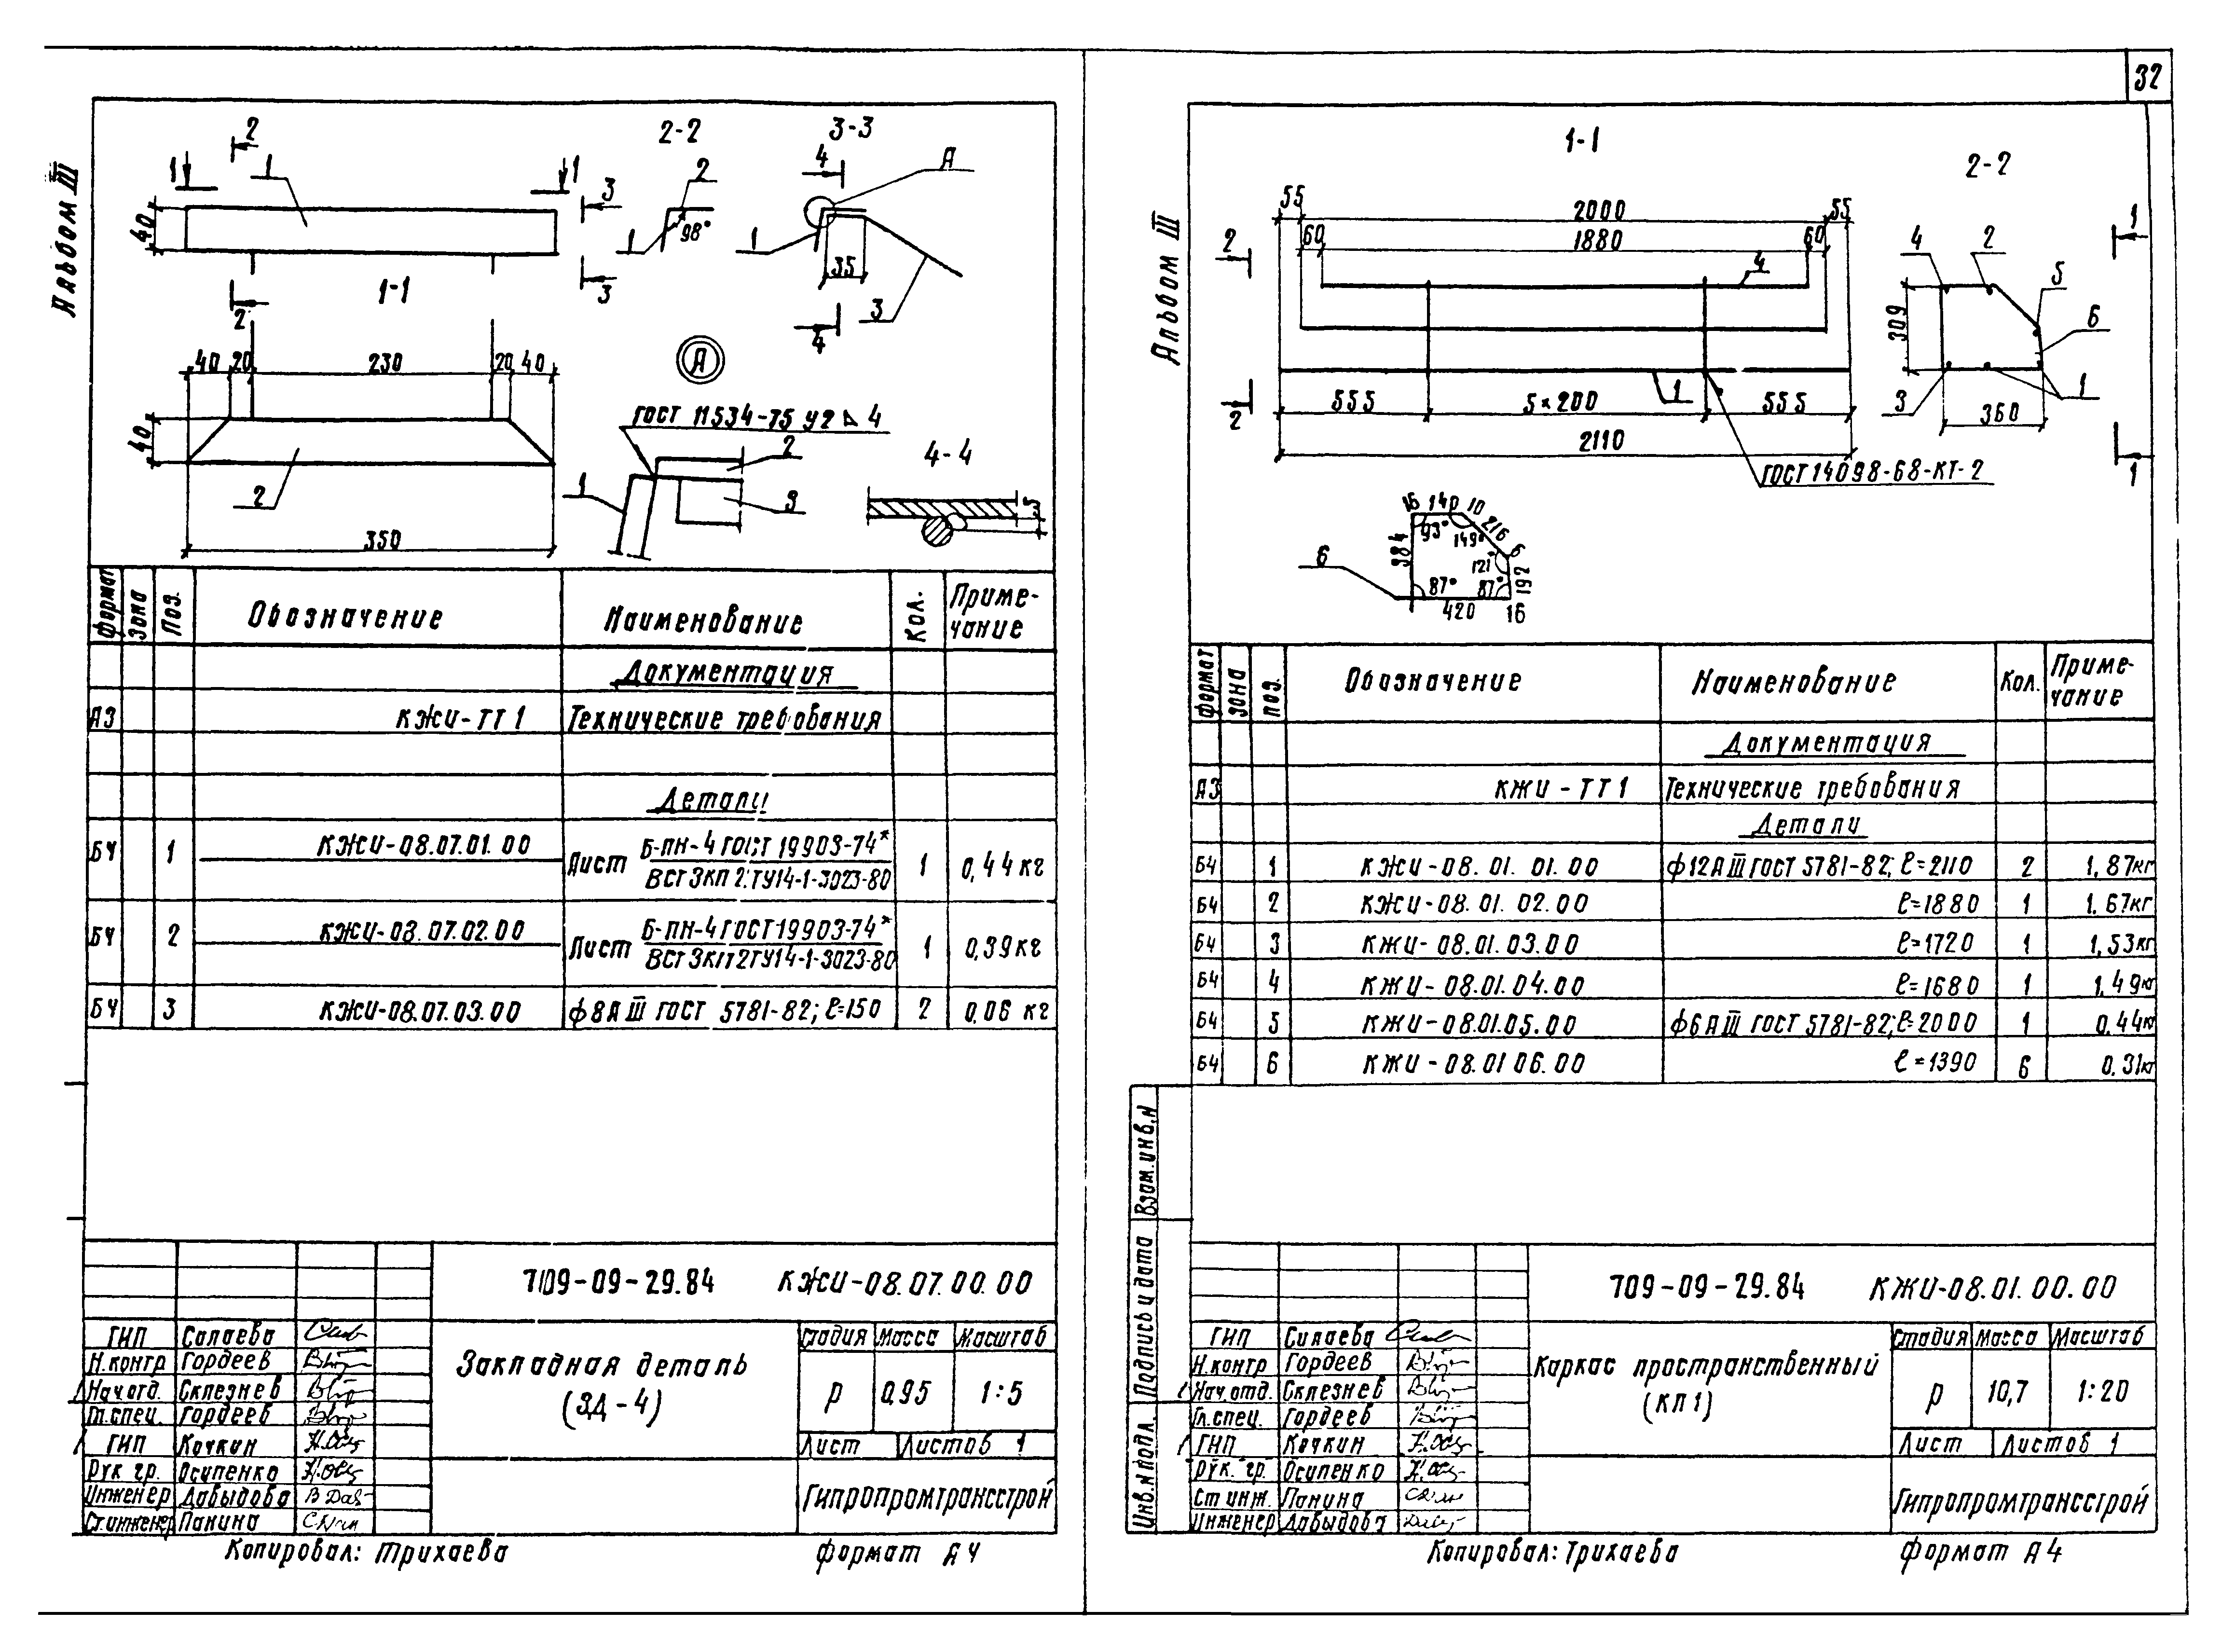 32
Альбом III
2
1
1
1
2-2
3-3
3
40
2
1
98°
4
А
1
35
3
4
3
2
1-1
40 20 230 20 40
40
2
350
А
ГОСТ 11534-75 У2 ⊿ 4
2
1
3
4-4
Формат Зона Поз. Обозначение Наименование Кол. Примечание
Документация
А3 КЖИ-ТТ1 Технические требования
Детали
БЧ 1 КЖИ-08.07.01.00 Лист Б-ПН-4 ГОСТ 19903-74* 1 0,44 кг
ВСт3кп2 ТУ14-1-3023-80
БЧ 2 КЖИ-08.07.02.00 Лист Б-ПН-4 ГОСТ 19903-74* 1 0,39 кг
ВСт3кп2 ТУ14-1-3023-80
БЧ 3 КЖИ-08.07.03.00 ф8АIII ГОСТ 5781-82; ℓ=150 2 0,06 кг
709-09-29.84 КЖИ-08.07.00.00
Закладная деталь
(ЗД-4)
Стадия Масса Масштаб
Р 0,95 1:5
Лист Листов 1
Гипропромтрансстрой
ГИП Салаева
Н.контр Гордеев
Нач.отд. Склезнев
Гл.спец. Гордеев
ГИП Кочкин
Рук гр. Осипенко
Инженер Давыдова
Ст.инженер Панина
Копировал: Трихаева Формат А4
Альбом III
1-1
2-2
55 2000 55
60 1880 60
2
4
1
555 5×200 555
2
2110
ГОСТ 14098-68-КТ-2
1
4 2
5
6
309
3
360
1
1
16 140 10 216 6
93° 149°
384
121°
192
6
87° 87°
420 16
Формат Зона Поз. Обозначение Наименование Кол. Примечание
Документация
А3 КЖИ-ТТ1 Технические требования
Детали
БЧ 1 КЖИ-08.01.01.00 ф12АIII ГОСТ 5781-82; ℓ=2110 2 1,87кг
БЧ 2 КЖИ-08.01.02.00 ℓ=1880 1 1.67кг
БЧ 3 КЖИ-08.01.03.00 ℓ=1720 1 1,53кг
БЧ 4 КЖИ-08.01.04.00 ℓ=1680 1 1,49кг
БЧ 5 КЖИ-08.01.05.00 ф6АIII ГОСТ 5781-82; ℓ=2000 1 0.44кг
БЧ 6 КЖИ-08.01 06.00 ℓ=1390 6 0.31кг
Взам.инв.N
Подпись и дата
Инв.N подл.
709-09-29.84 КЖИ-08.01.00.00
Каркас пространственный
(КП1)
Стадия Масса Масштаб
Р 10,7 1:20
Лист Листов 1
Гипропромтрансстрой
ГИП Силаева
Н.контр Гордеев
Нач.отд. Склезнев
Гл.спец. Гордеев
ГИП Кочкин
Рук. гр. Осипенко
Ст инж. Панина
Инженер Давыдова
Копировал: Трихаева Формат А4